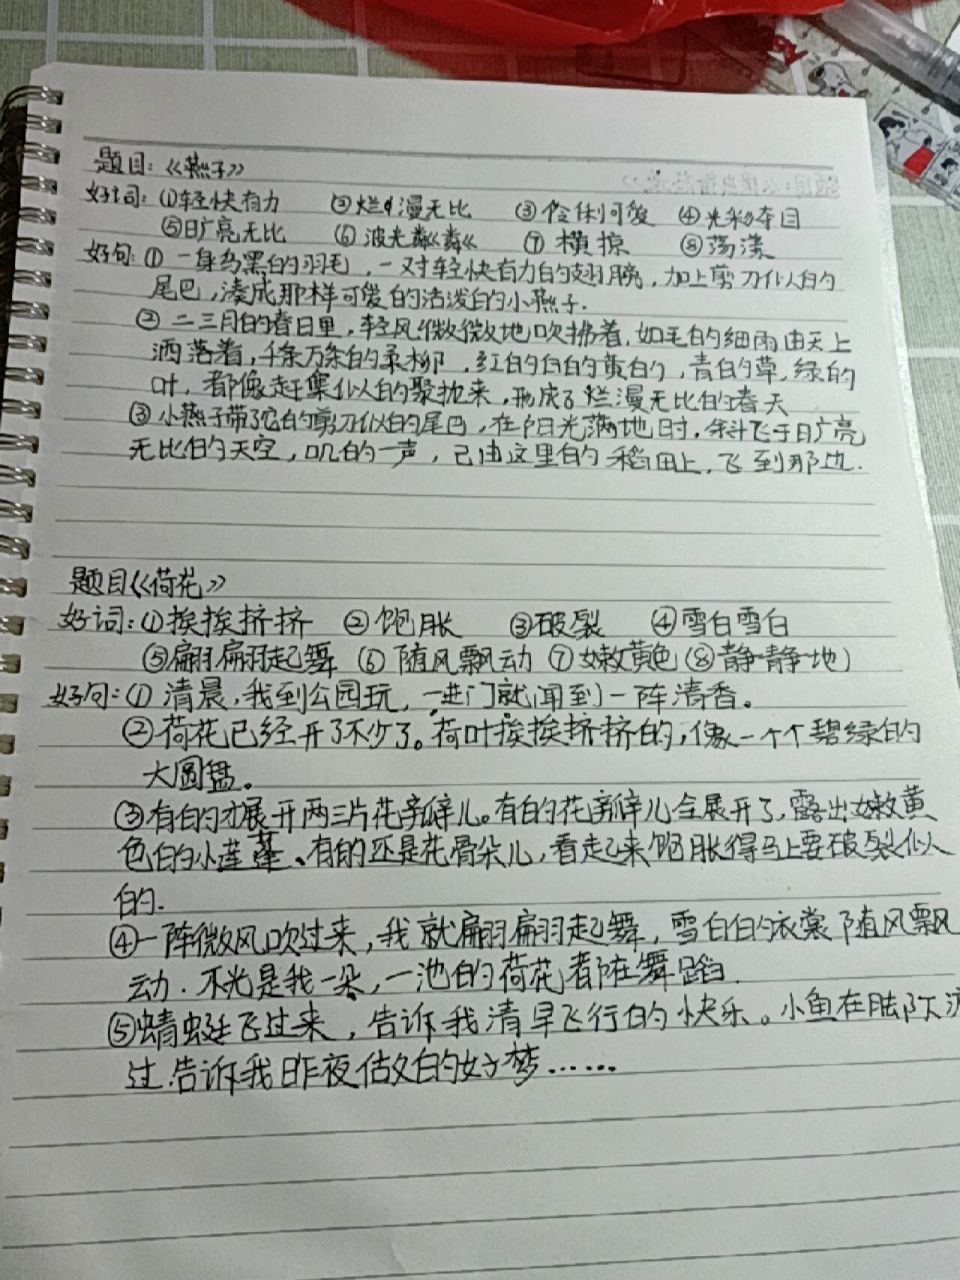 题目:《燕子》
好词:①轻快有力 ②烂漫无比 ③伶俐可爱 ④光彩夺目
⑤旷亮无比 ⑥波光粼粼 ⑦横掠 ⑧荡漾
好句:①一身乌黑的羽毛,一对轻快有力的翅膀,加上剪刀似的
尾巴,凑成那样可爱的活泼的小燕子.
②二三月的春日里,轻风微微地吹拂着,如毛的细雨由天上
洒落着,千条万条的柔柳,红的白的黄的,青的草,绿的
叶,都像赶集似的聚拢来,形成了烂漫无比的春天
③小燕子带了它的剪刀似的尾巴,在阳光满地时,斜飞于旷亮
无比的天空,叽的一声,已由这里的稻田上,飞到那边.
题目《荷花》
好词:①挨挨挤挤 ②饱胀 ③破裂 ④雪白雪白
⑤翩翩起舞 ⑥随风飘动 ⑦嫩黄色 (⑧静静地)
好句:①清晨,我到公园玩,一进门就闻到一阵清香。
②荷花已经开了不少了。荷叶挨挨挤挤的,像一个个碧绿的
大圆盘。
③有的才展开两三片花瓣儿。有的花瓣儿全展开了,露出嫩黄
色的小莲蓬。有的还是花骨朵儿,看起来饱胀得马上要破裂似
的.
④一阵微风吹过来,我就翩翩起舞,雪白的衣裳随风飘
动.不光是我一朵,一池的荷花都在舞蹈.
⑤蜻蜓飞过来,告诉我清早飞行的快乐。小鱼在脚下游
过.告诉我昨夜做的好梦……